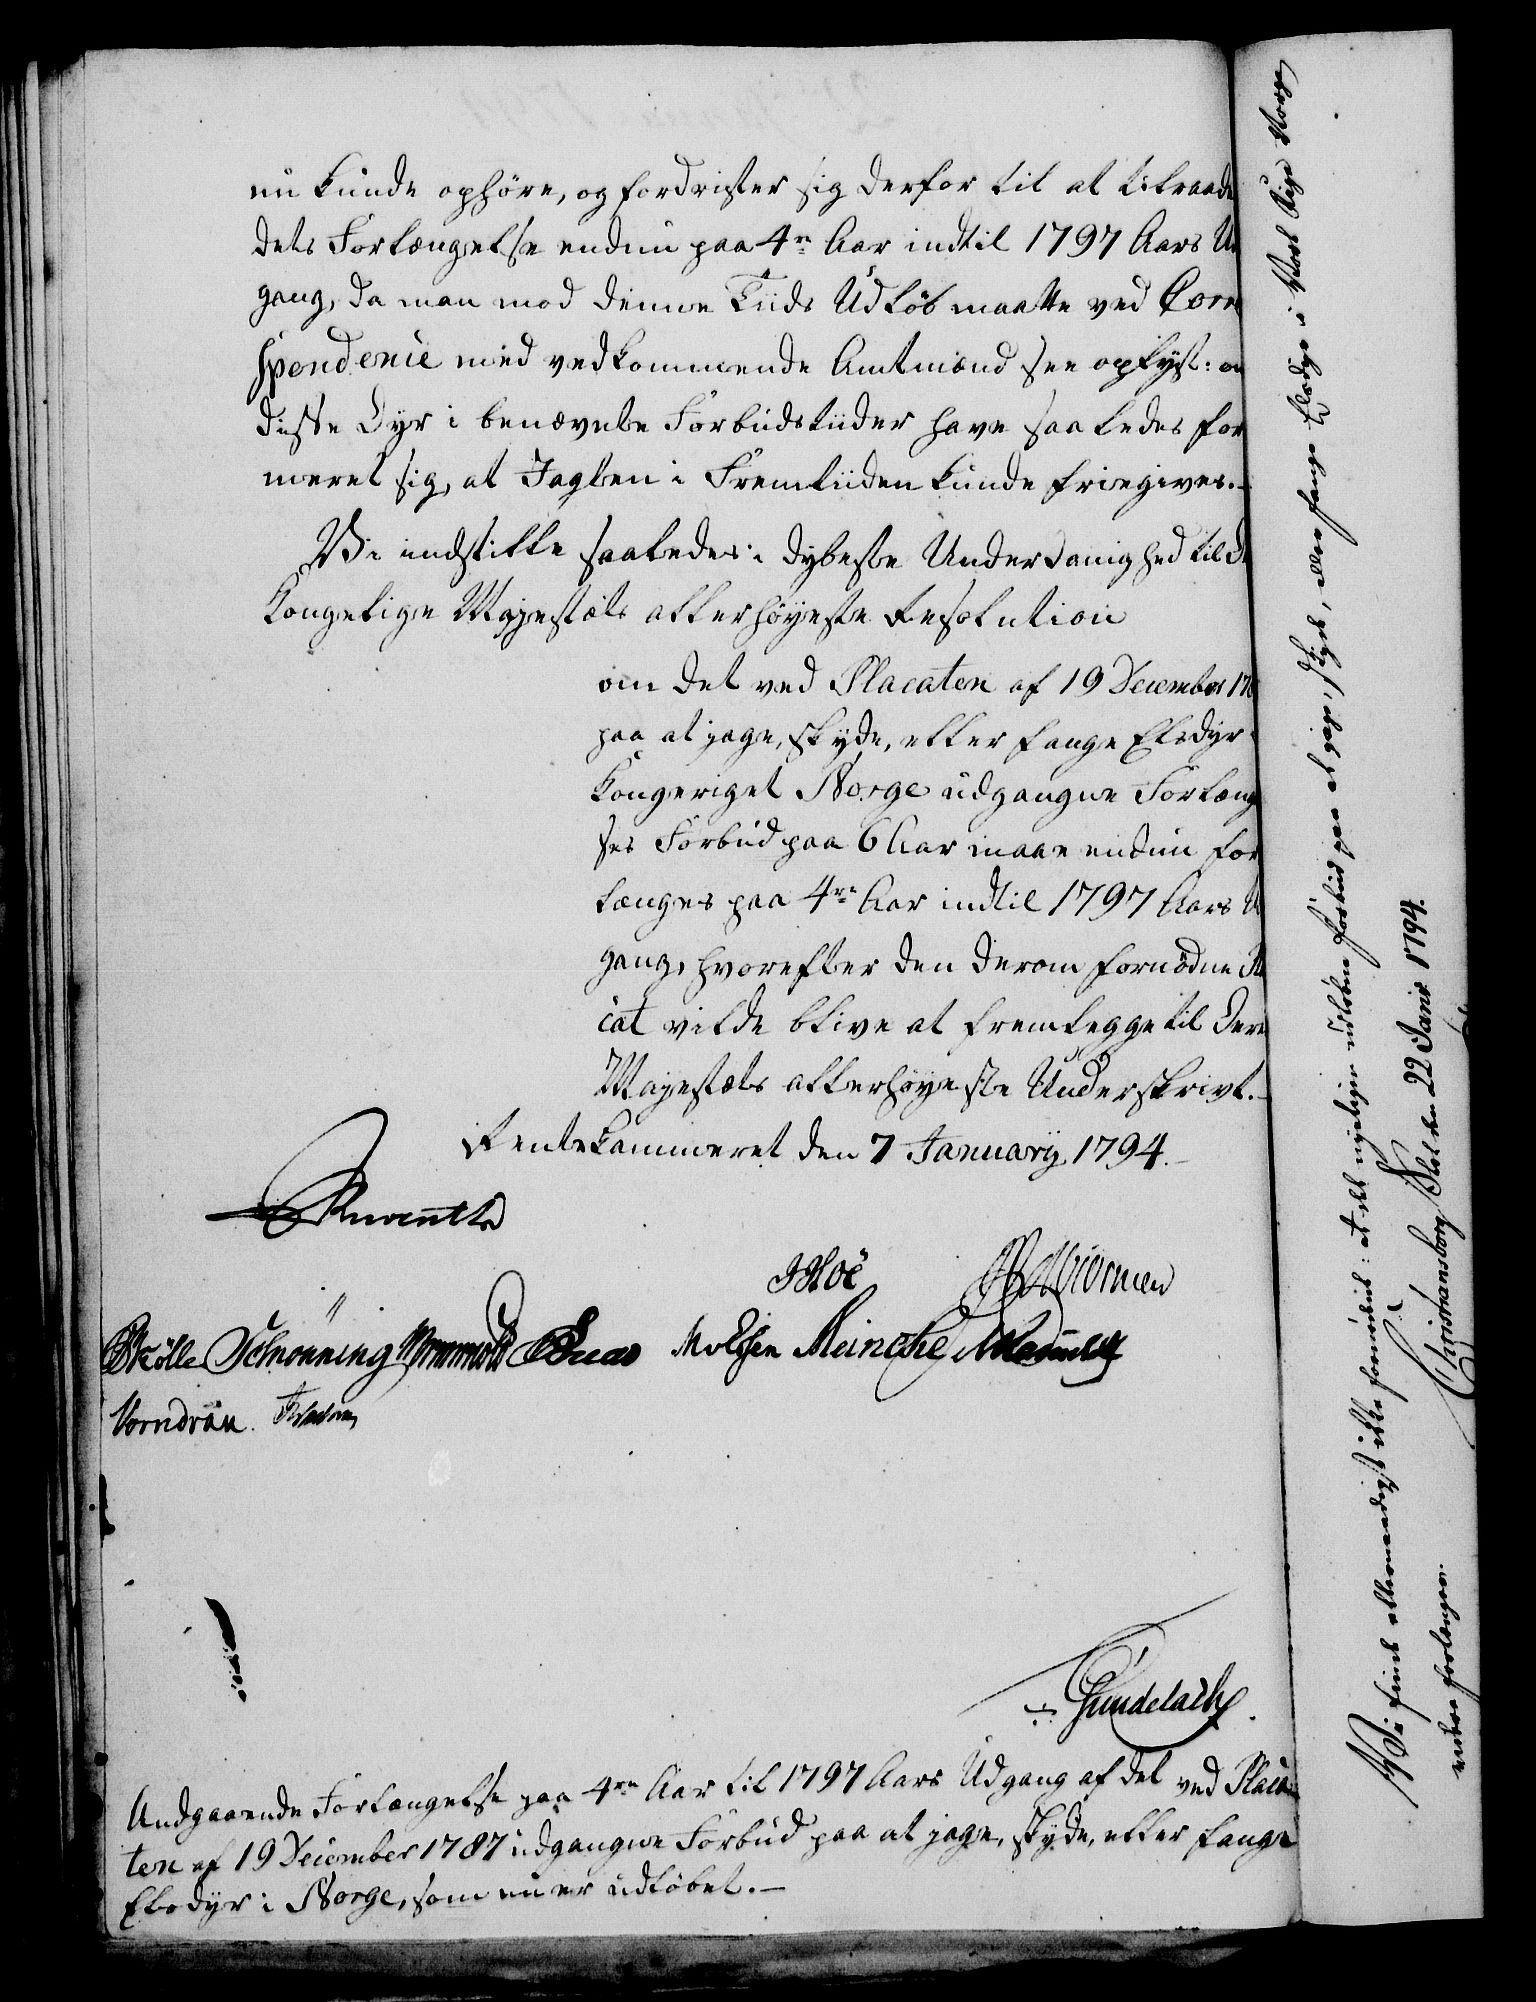 nu kunde ophöre, og fordrister sig derfor til at tilraade
dets Forlængelse endnu paa 4re Aar indtil 1797 Aars Ud
gang, da man mod denne Tiids Udløb maatte ved Corre
spondence med vedkommende Amtmænd see oplyst: om
disse Dyr i benævnte Forbudstiider have saaledes for
meret sig, at Jagten i Fremtiiden kunde friegives.-
Vi indstille saaledes i dybeste Underdanighed til De
Kongelige Majestæts allerhöyeste Resolution
om det ved Placaten af 19 December 178
paa at jage, skyde, eller fange Elsdyr i
Kongeriget Norge udgangne Forlæng
ses Forbud paa 6 Aar maae endnu for
længes paa 4re Aar indtil 1797 Aars Ud
gang, hvorefter den derom fornödne Pla
cat vilde blive at fremlegge til Deres
Majestæts allerhöyeste Underskrivt.-
Rentekammeret den 7 January 1794.-
Reventlo
JHoë
Skölle Schönning Wormskiold Buas Molzen Meincke
Vorndran.
Gundelach.
Andgaaende Forlængelse paa 4re Aar til 1797 Aars Udgang af det ved Placa
ten af 19 December 1787 udgangne Forbud paa at jage, skyde, eller fange
Elsdyr i Norge, som nu er udløbet.-
Vi finde allernaadigst ikke fornödent: at det nyeligen udløbne Forbud paa at jage, skyde, eller fange Elsdyr i Vort Rige Norge
endnu forlænges.
Christiansborg Slot den 22 Janr. 1794.